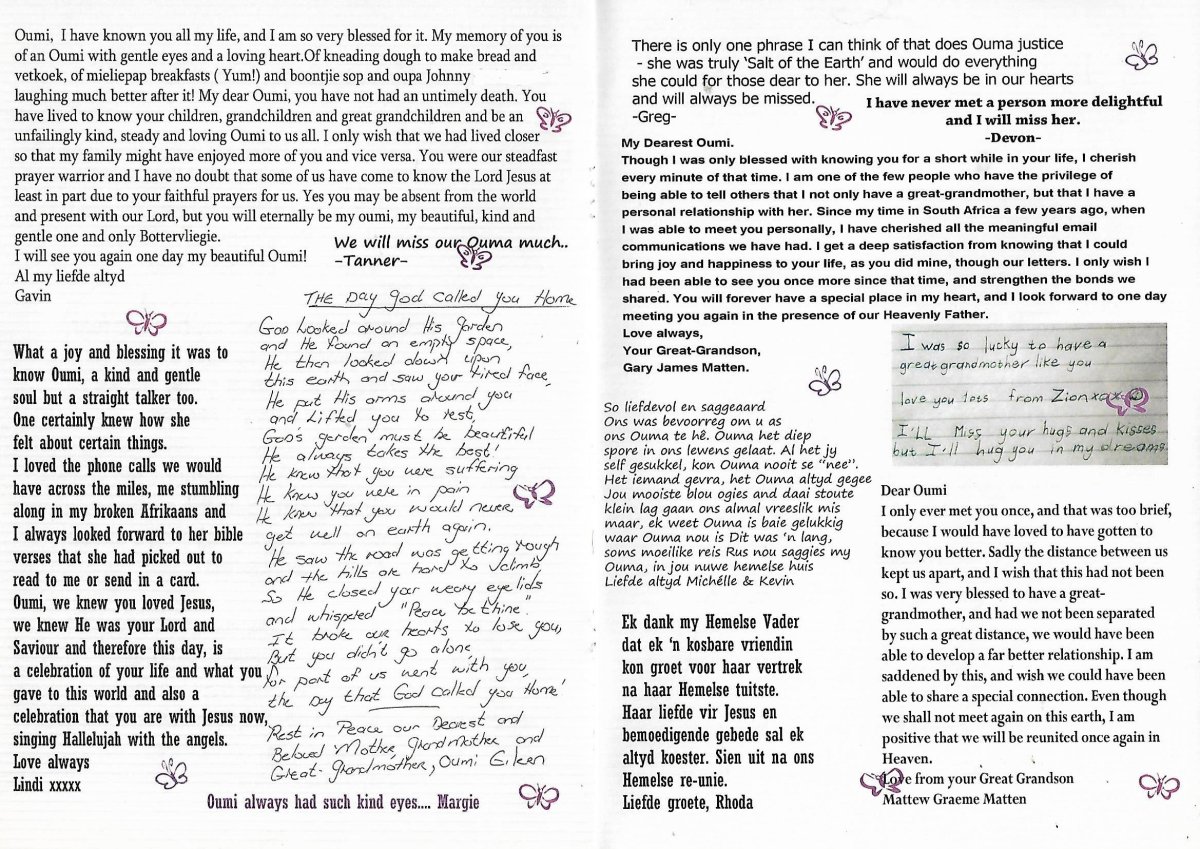 Oumi, I have known you all my life, and I am so very blessed for it. My memory of you is
of an Oumi with gentle eyes and a loving heart.Of kneading dough to make bread and
vetkoek, of mieliepap breakfasts ( Yum!) and boontjie sop and oupa Johnny
laughing much better after it! My dear Oumi, you have not had an untimely death. You
have lived to know your children, grandchildren and great grandchildren and be an
unfailingly kind, steady and loving Oumi to us all. I only wish that we had lived closer
so that my family might have enjoyed more of you and vice versa. You were our steadfast
prayer warrior and I have no doubt that some of us have come to know the Lord Jesus at
least in part due to your faithful prayers for us. Yes you may be absent from the world
and present with our Lord, but you will eternally be my oumi, my beautiful, kind and
gentle one and only Bottervliegie.
I will see you again one day my beautiful Oumi!
Al my liefde altyd
Gavin
We will miss our Ouma much..
-Tanner-
What a joy and blessing it was to
know Oumi, a kind and gentle
soul but a straight talker too.
One certainly knew how she
felt about certain things.
I loved the phone calls we would
have across the miles, me stumbling
along in my broken Afrikaans and
I always looked forward to her bible
verses that she had picked out to
read to me or send in a card.
Oumi, we knew you loved Jesus,
we knew He was your Lord and
Saviour and therefore this day, is
a celebration of your life and what you
gave to this world and also a
celebration that you are with Jesus now,
singing Hallelujah with the angels.
Love always
Lindi xxxxx
THE Day God called you Home
God Looked around His garden
and He found an empty space,
He then looked down upon
this earth and saw your tired face,
He put His arms around you
and Lifted you to rest,
God's garden must be beautiful
He always takes the best!
He knew that you were suffering
He knew you were in pain
He knew that you would never
get well on earth again.
He saw the road was getting rough
and the hills are hard to climb
So He closed your weary eye lids
and whispered "Peace be thine".
It broke our hearts to lose you,
But you didn't go alone,
for part of us went with you,
the Day that God Called you Home!
Rest in Peace our Dearest and
Beloved Mother, Grandmother and
Great-grandmother, Oumi Eileen
Oumi always had such kind eyes.... Margie
There is only one phrase I can think of that does Ouma justice
- she was truly ‘Salt of the Earth’ and would do everything
she could for those dear to her. She will always be in our hearts
and will always be missed.
-Greg-
I have never met a person more delightful
and I will miss her.
-Devon-
My Dearest Oumi.
Though I was only blessed with knowing you for a short while in your life, I cherish
every minute of that time. I am one of the few people who have the privilege of
being able to tell others that I not only have a great-grandmother, but that I have a
personal relationship with her. Since my time in South Africa a few years ago, when
I was able to meet you personally, I have cherished all the meaningful email
communications we have had. I get a deep satisfaction from knowing that I could
bring joy and happiness to your life, as you did mine, though our letters. I only wish I
had been able to see you once more since that time, and strengthen the bonds we
shared. You will forever have a special place in my heart, and I look forward to one day
meeting you again in the presence of our Heavenly Father.
Love always,
Your Great-Grandson,
Gary James Matten.
I was so lucky to have a
great grandmother like you
love you lots from Zion xox
I'LL Miss your hugs and kisses
but I'll hug you in my dreams
So liefdevol en saggeaard
Ons was bevoorreg om u as
ons Ouma te hê. Ouma het diep
spore in ons lewens gelaat. Al het jy
self gesukkel, kon Ouma nooit se “nee”.
Het iemand gevra, het Ouma altyd gegee
Jou mooiste blou ogies and daai stoute
klein lag gaan ons almal vreeslik mis
maar, ek weet Ouma is baie gelukkig
waar Ouma nou is Dit was ‘n lang,
soms moeilike reis Rus nou saggies my
Ouma, in jou nuwe hemelse huis
Liefde altyd Michélle & Kevin
Ek dank my Hemelse Vader
dat ek ‘n kosbare vriendin
kon groet voor haar vertrek
na haar Hemelse tuitste.
Haar liefde vir Jesus en
bemoedigende gebede sal ek
altyd koester. Sien uit na ons
Hemelse re-unie.
Liefde groete, Rhoda
Dear Oumi
I only ever met you once, and that was too brief,
because I would have loved to have gotten to
know you better. Sadly the distance between us
kept us apart, and I wish that this had not been
so. I was very blessed to have a great-
grandmother, and had we not been separated
by such a great distance, we would have been
able to develop a far better relationship. I am
saddened by this, and wish we could have been
able to share a special connection. Even though
we shall not meet again on this earth, I am
positive that we will be reunited once again in
Heaven.
Love from your Great Grandson
Mattew Graeme Matten